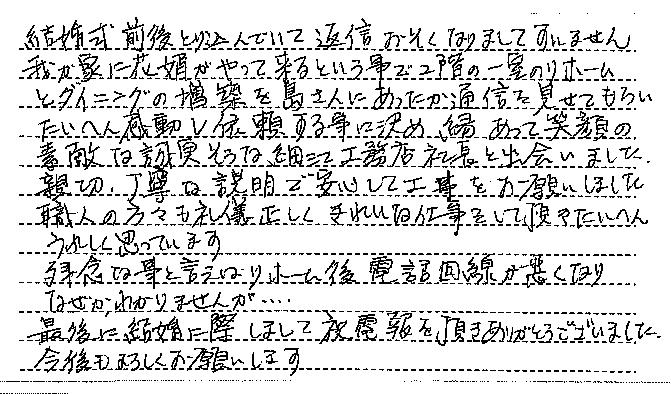 結婚式前後とり込んでいて返信おそくなりましてすいません
我が家に花婿がやって来るという事で2階の一室のリホーム
とダイニングの増築を島さんにあったか通信を見せてもらい
たいへん感動し依頼する事に決め、縁あって笑顔の
素敵な誠実そうな細江工務店社長と出会いました。
親切、丁寧な説明で安心して工事をお願いしました
職人の方々も礼儀正しくきれいな仕事をして頂きたいへん
うれしく思っています
残念な事と言えばリホーム後電話回線が悪くなり
なぜか、わかりませんが‥‥
最後に結婚に際しまして祝電報を頂きありがとうございました。
今後もよろしくお願いします